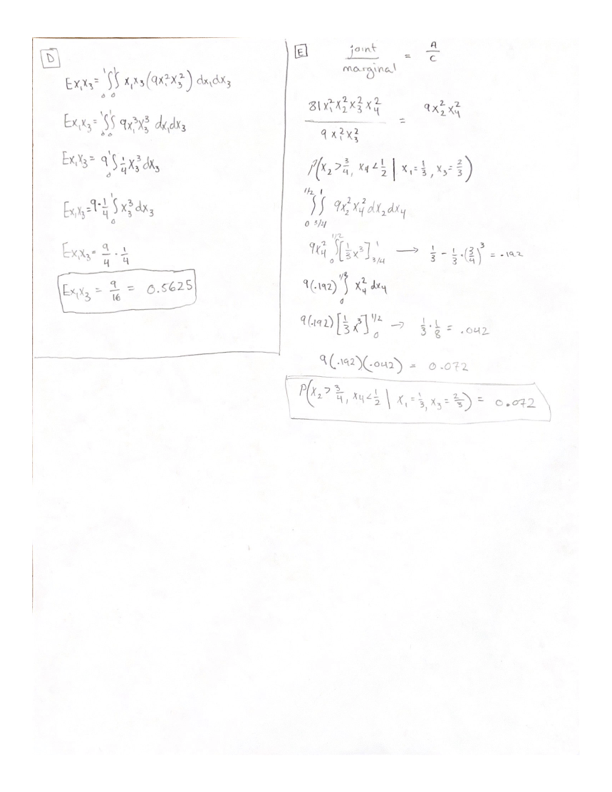 D
Ex₁x₃ = ∫₀¹∫₀¹ x₁x₃ (9x₁²x₃²) dx₁dx₃
Ex₁x₃ = ∫₀¹∫₀¹ 9x₁³x₃³ dx₁dx₃
Ex₁x₃ = 9 ∫₀¹ 1/4 x₃³ dx₃
Ex₁x₃ = 9 · 1/4 ∫₀¹ x₃³ dx₃
Ex₁x₃ = 9/4 · 1/4
Ex₁x₃ = 9/16 = 0.5625
E
joint / marginal = A / C
81x₁²x₂²x₃²x₄² / 9x₁²x₃² = 9x₂²x₄²
P(x₂ > 3/4, x₄ < 1/2 | x₁ = 1/3, x₃ = 2/3)
∫₀^1/2 ∫_3/4^1 9x₂²x₄² dx₂dx₄
9x₄² ∫₀^1/2 [1/3 x³]_3/4^1 → 1/3 - 1/3 · (3/4)³ = .192
9(.192) ∫₀^1/2 x₄² dx₄
9(.192) [1/3 x³]₀^1/2 → 1/3 · 1/8 = .042
9(.192)(.042) = 0.072
P(x₂ > 3/4, x₄ < 1/2 | x₁ = 1/3, x₃ = 2/3) = 0.072